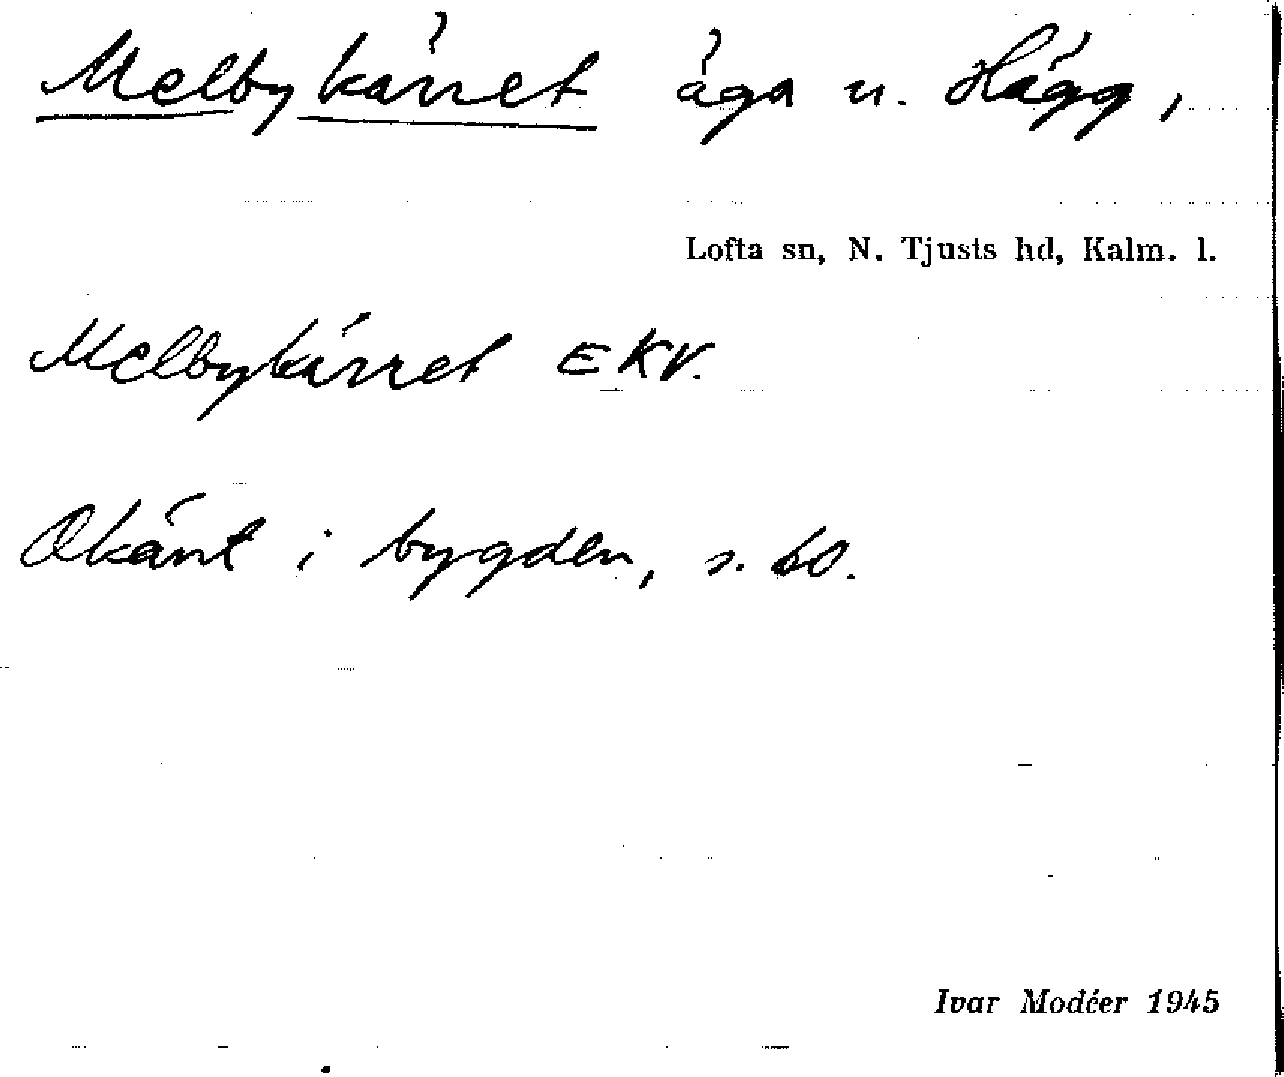 Melbykärret äga u. Hägg,
Lofta sn, N. Tjusts hd, Kalm. l.
Melbykärret EKV.
Okänt i bygden, s. so.
Ivar Modéer 1945